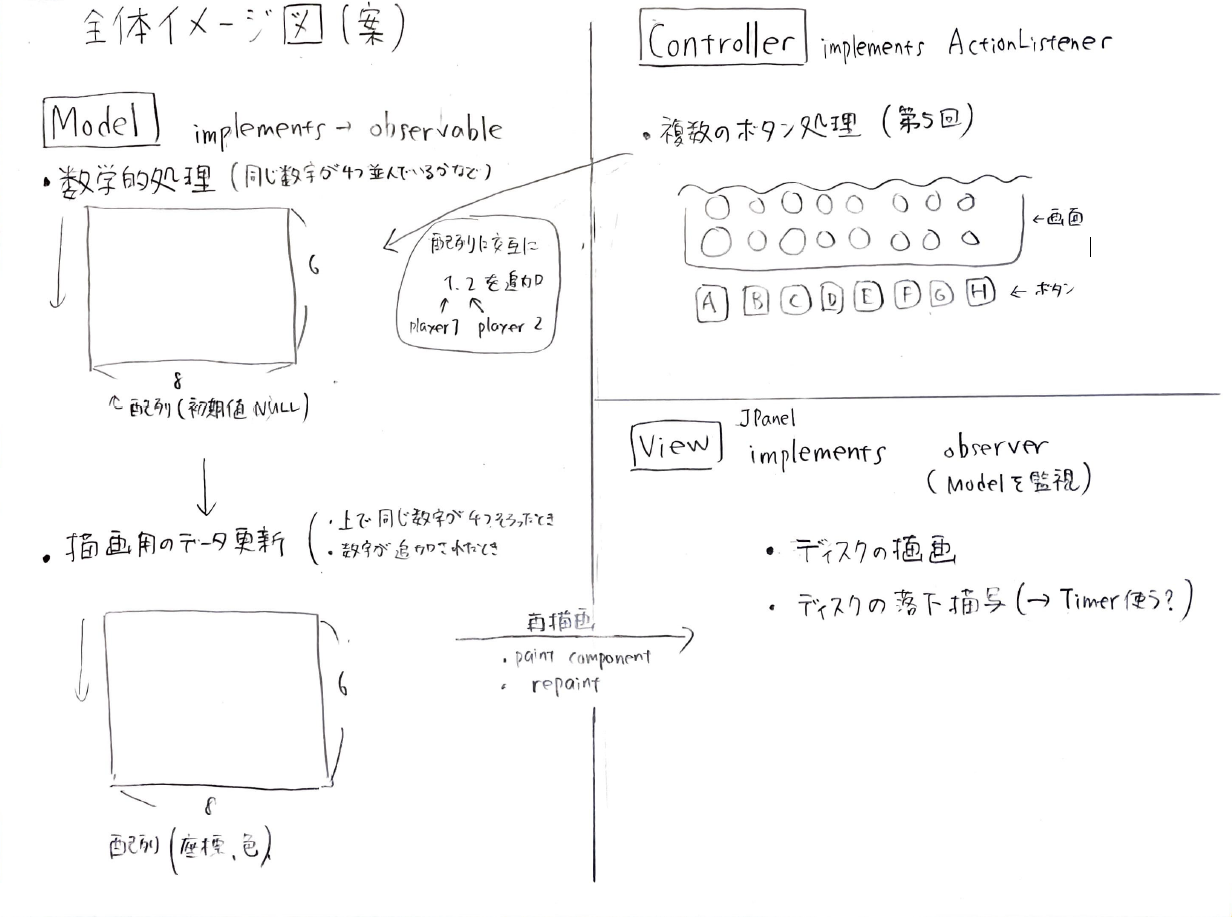 全体イメージ図(案)
Model implements → observable
・数学的処理(同じ数字が4つ並んでいるかなど)
6
8
↖ 配列(初期値 NULL)
配列に交互に
1. 2 を追加
↑ ↖
player1 player 2
・描画用のデータ更新
・上で同じ数字が4つそろったとき
・数字が追加されたとき
6
8
配列(座標、色)
再描画
・paint component
・repaint
Controller implements ActionListener
・複数のボタン処理(第5回)
←画面
A B C D E F G H ← ボタン
JPanel
View implements observer
(Modelを監視)
・ディスクの描画
・ディスクの落下描写(→ Timer使う?)